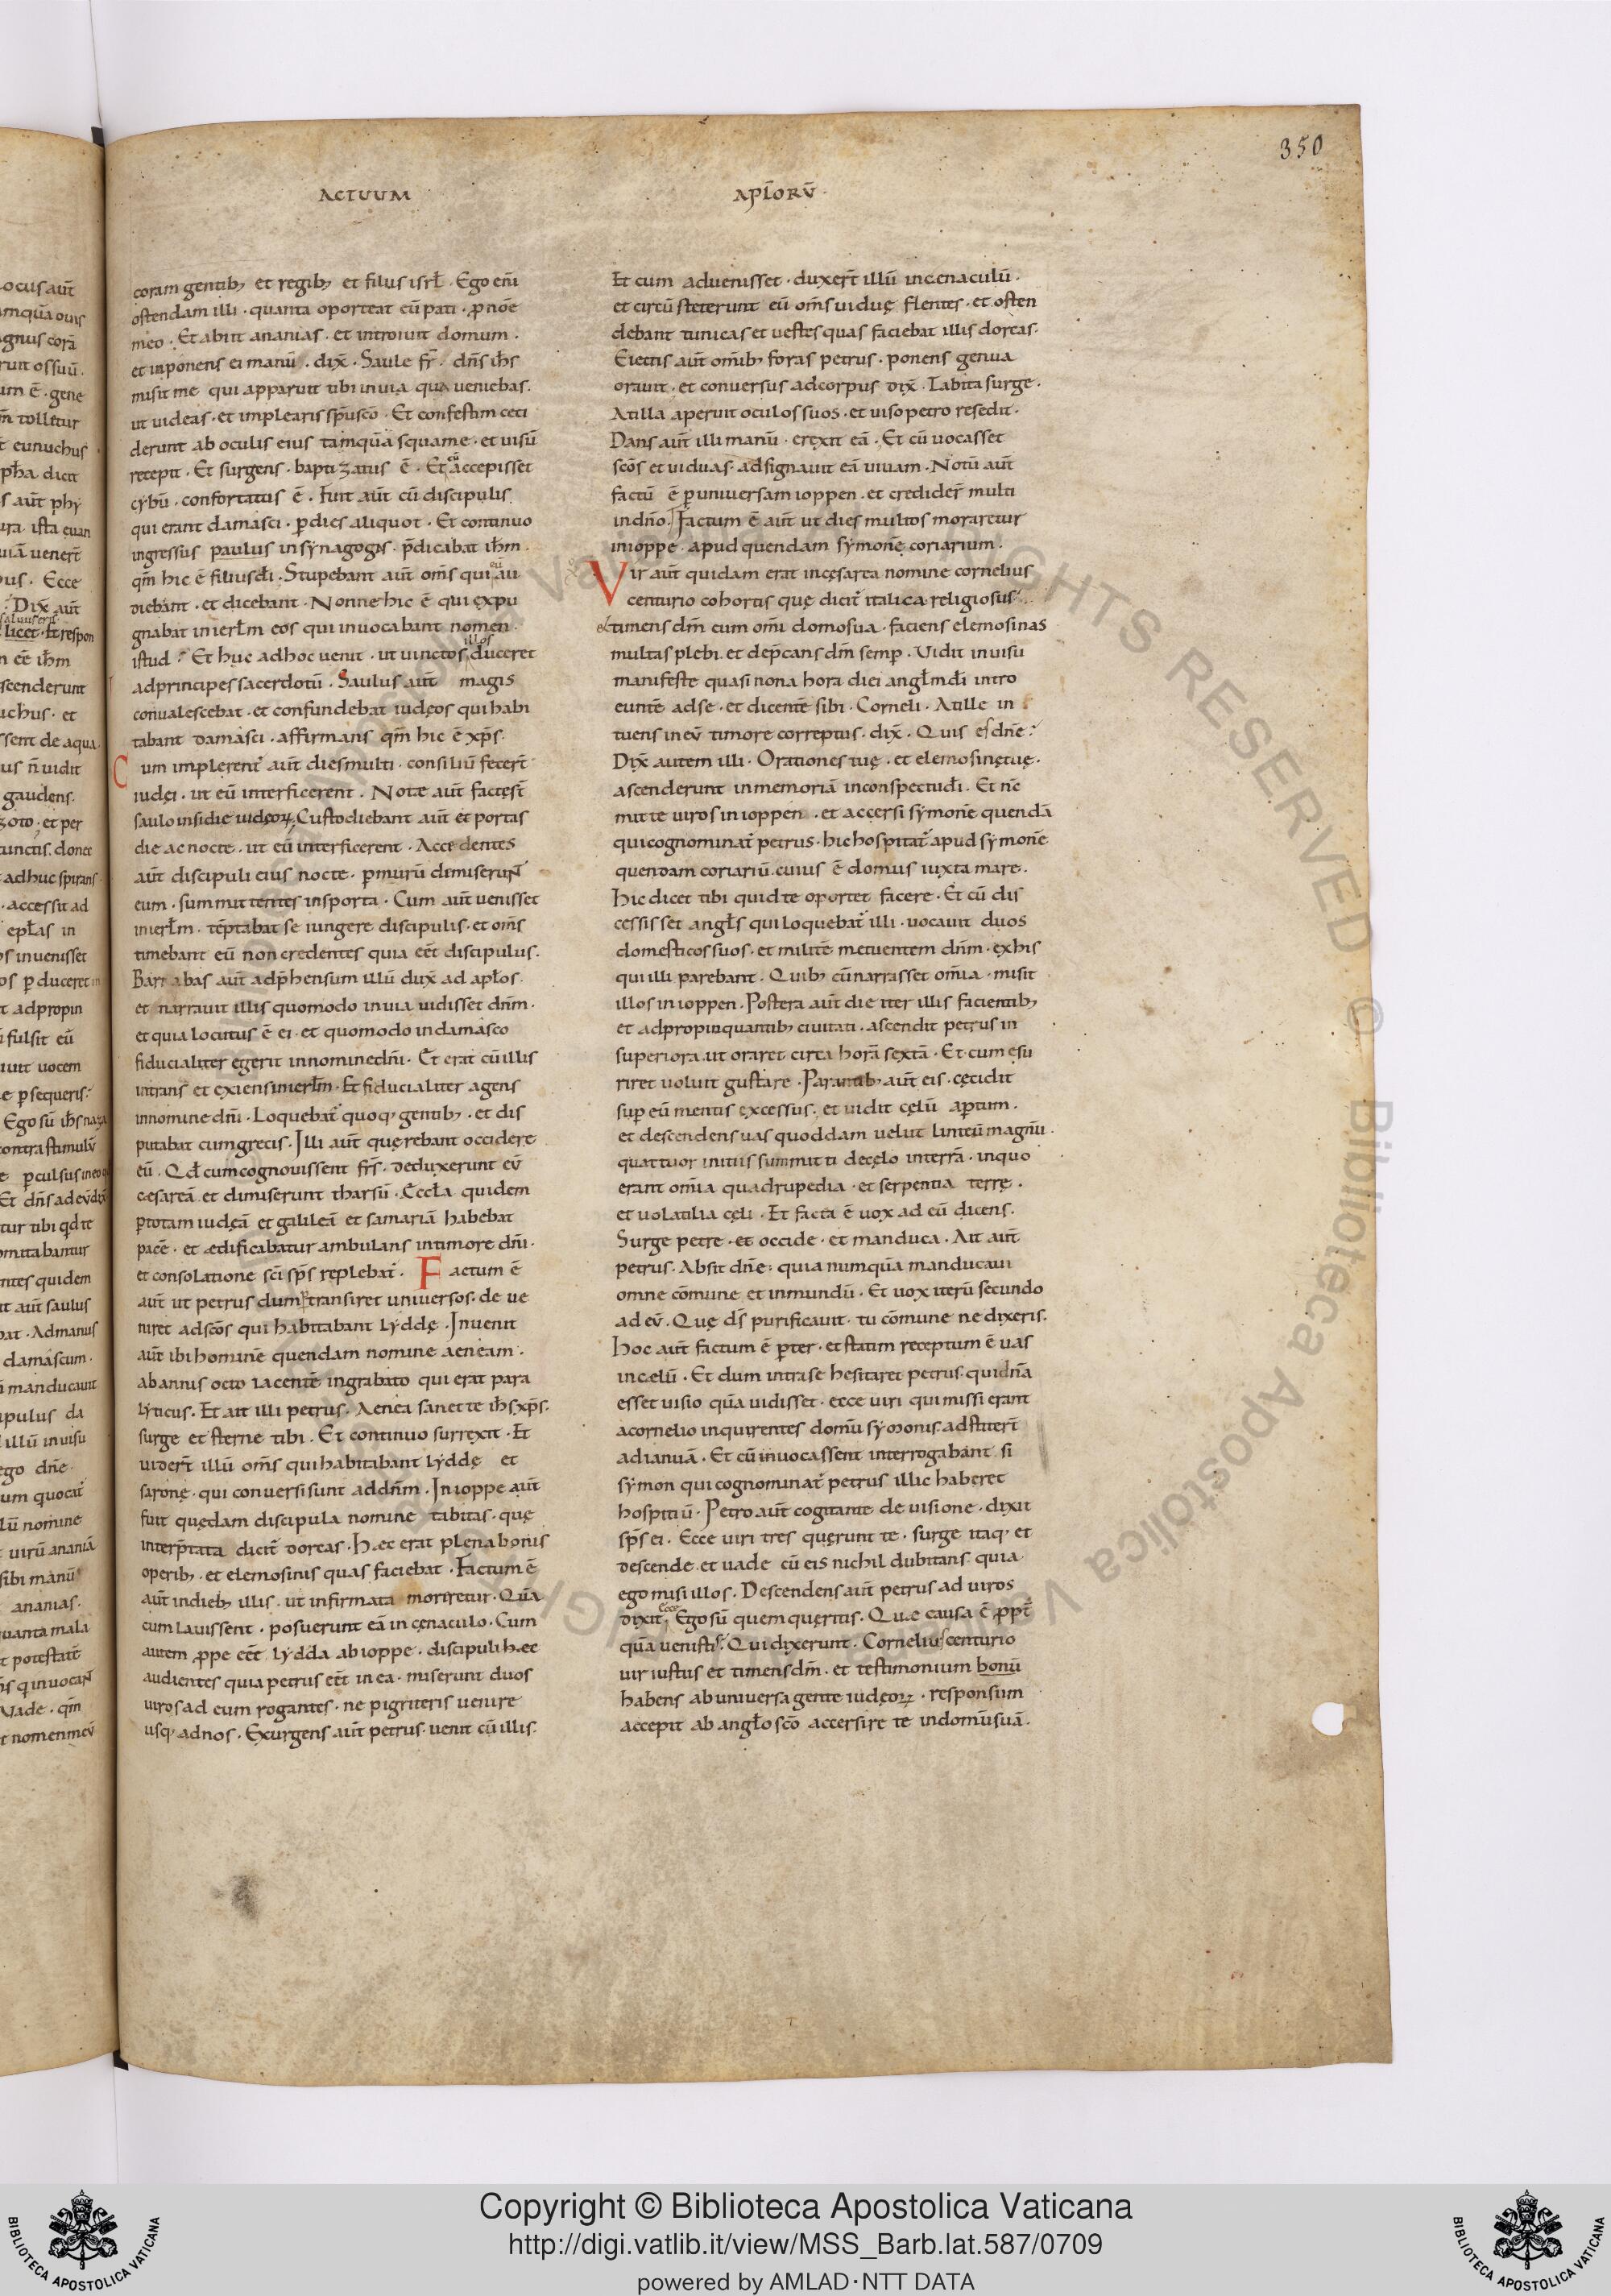 350
ACTUUM
APL̄ORŪ
coram gentib; et regib; et filiis isrl̄. Ego eni̅
ostendam illi. quanta oporteat eū pati. p noe̅
meo. Et abiit ananias. et introiuit domum.
et inponens ei manū. dix̄. Saule fr̄. dn̄s ih̄s
misit me qui apparuit tibi inuia qua ueniebas.
ut uideas. et implearis sp̄uscō. Et confestim ceci
derunt ab oculis eius tamquā squame. et uisū
recepit. Et surgens. baptizatus ē. Et cū accepisset
cybū. confortatus ē. Fuit aūt cū discipulis
qui erant damasci. p̱ dies aliquot. Et continuo
ingressus paulus insynagogis. p̄dicabat ih̄m.
qm̄ hic ē filius dī. Stupebant aūt om̄s qui eū au
diebant. et dicebant. Nonne hic ē qui expu
gnabat inierl̄m eos qui inuocabant nomen
istud? Et huc adhoc uenit. ut uinctos illos duceret
adprincipes sacerdotū. Saulus aūt magis
conualescebat. et confundebat iudęos qui habi
tabant damasci. affirmans qm̄ hic ē xp̄s.
Cum implerent̄ aūt dies multi. consiliū fecer̄t
iudęi. ut eū interficerent. Notæ aūt factę st̄
saulo insidie iudęoꝝ. Custodiebant aūt et portas
die ac nocte. ut eū interficerent. Accedentes
aūt discipuli eius nocte. p̱ murū dimiserun̄t
eum. summittentes insporta. Cum aūt uenisset
inierl̄m. tēptabat se iungere discipulis. et om̄s
timebant eū non credentes quia eēt discipulus.
Barnabas aūt adp̄hensum illū dux̄ ad apl̄os.
et narrauit illis quomodo inuia uidisset dn̄m.
et quia locutus ē ei. et quomodo in damasco
fiducialiter egerit innomine dn̄i. Et erat cū illis
intrans et exiens inierl̄m. Et fiducialiter agens
innomine dn̄i. Loquebat̄ quoq; gentib; et dis
putabat cum grecis. Illi aūt quęrebant occidere
eū. Qđ cum cognouissent frs̄. deduxerunt eū
cęsareā. et dimiserunt tharsū. Eccl̄a quidem
p̱ totam iudęā et galileā et samariā habebat
pacē. et ædificabatur ambulans intimore dn̄i.
et consolatione sc̄i sp̄s replebat̄. Factum ē
aūt ut petrus dum p̱transiret uniuersos. deue
niret adscōs qui habitabant lyddę. Inuenit
aūt ibi hominē quendam nomine aeneam.
ab annis octo iacentē ingrabato qui erat para
lyticus. Et ait illi petrus. Aenea sanet te ih̄s xp̄s.
surge et sterne tibi. Et continuo surrexit. Et
uider̄t illū om̄s qui habitabant lyddę et
saronę. qui conuersi sunt addn̄m. In ioppe aūt
fuit quędam discipula nomine tabitas. quę
interp̄tata dicit̄ dorcas. Hæc erat plena bonis
operib; et elemosinis quas faciebat. Factum ē
aūt indieb; illis. ut infirmata moriretur. Quā
cum lauissent. posuerunt eā in cęnaculo. Cum
autem ꝓpe eēt lydda ab ioppe. discipuli hæc
audientes quia petrus eēt in ea. miserunt duos
uiros ad eum rogantes. ne pigriteris uenire
usq; adnos. Exurgens aūt petrus. uenit cū illis.
Et cum aduenisset. duxer̄t illū incenaculū.
et circūsteterunt eū om̄s uiduę flentes. et osten
debant tunicas et uestes quas faciebat illis dorcas.
Eiectis aūt omib; foras petrus. ponens genua
orauit. et conuersus adcorpus dix̄. Tabita surge.
Atilla aperuit oculos suos. et uiso petro resedit.
Dans aūt illi manū. erexit eā. Et cū uocasset
scōs et uiduas. adsignauit eā uiuam. Notū aūt
factū ē p̱ uniuersam ioppen. et credider̄ multi
in dn̄o. Factum ē aūt ut dies multos moraretur
inioppe. apud quendam symonē coriarium.
Vir aūt quidam erat incęsarea nomine cornelius
centurio cohortis quę dicit̄ italica. religiosus
et timens dm̄ cum omi domo sua. faciens elemosinas
multas plebi. et dep̄cans dm̄ semp̱. Vidit in uisu
manifeste quasi nona hora diei angl̄m dī intro
euntē adse. et dicentē sibi. Corneli. Atille in
tuens in eū timore correptus. dix̄. Quis es dn̄e?
Dix̄ autem illi. Orationes tuę. et elemosinę tuę.
ascenderunt inmemoriā inconspectu dī. Et nc̄
mitte uiros in ioppen. et accersi symonē quendā
qui cognominat̄ petrus. hic hospitat̄ apud symonē
quendam coriariū. cuius ē domus iuxta mare.
Hic dicet tibi quid te oportet facere. Et cū dis
cessisset angl̄s qui loquebat̄ illi. uocauit duos
domesticos suos. et militē metuentem dn̄m. exhis
qui illi parebant. Quib; cū narrasset om̄ia. misit
illos in ioppen. Postera aūt die iter illis facientib;
et adpropinquantib; ciuitati. ascendit petrus in
superiora. ut oraret circa horā sextā. Et cum esu
riret uoluit gustare. Parantib; aūt eis. cęcidit
sup̱ eū mentis excessus. et uidit cęlū ap̱tum.
et descendens uas quoddam uelut linteū magnū.
quattuor initiis summitti decęlo interrā. inquo
erant om̄ia quadrupedia. et serpentia terrę.
et uolatilia cęli. Et facta ē uox ad eū dicens.
Surge petre. et occide. et manduca. Ait aūt
petrus. Absit dn̄e. quia numquā manducaui
omne cōmune et inmundū. Et uox iterū secundo
ad eū. Quę ds̄ purificauit. tu cōmune ne dixeris.
Hoc aūt factum ē p̱ter. et statim receptum ē uas
incęlū. Et dum intra se hesitaret petrus. quidn̄a
esset uisio quā uidisset. ecce uiri qui missi erant
acornelio inquirentes domū symonis. adstiter̄t
adianuā. Et cū inuocassent interrogabant si
symon qui cognominat̄ petrus illic haberet
hospitiū. Petro aūt cogitante de uisione. dixit
sp̄s ei. Ecce uiri tres quęrunt te. surge itaq; et
descende. et uade cū eis nichil dubitans. quia
ego misi illos. Descendens aūt petrus ad uiros
dixit. Ecce Ego sū quem quęritis. Quæ causa ē ꝓpt̄
quā uenistis? Qui dixerunt. Cornelius centurio
uir iustus et timens dm̄. et testimonium bonū
habens ab uniuersa gente iudęoꝝ. responsum
accepit ab angl̄o scō accersire te in domū suā.
© Biblioteca Apostolica Vaticana
Copyright © Biblioteca Apostolica Vaticana
http://digi.vatlib.it/view/MSS_Barb.lat.587/0709
powered by AMLAD·NTT DATA
BIBLIOTECA APOSTOLICA VATICANA
BIBLIOTECA APOSTOLICA VATICANA